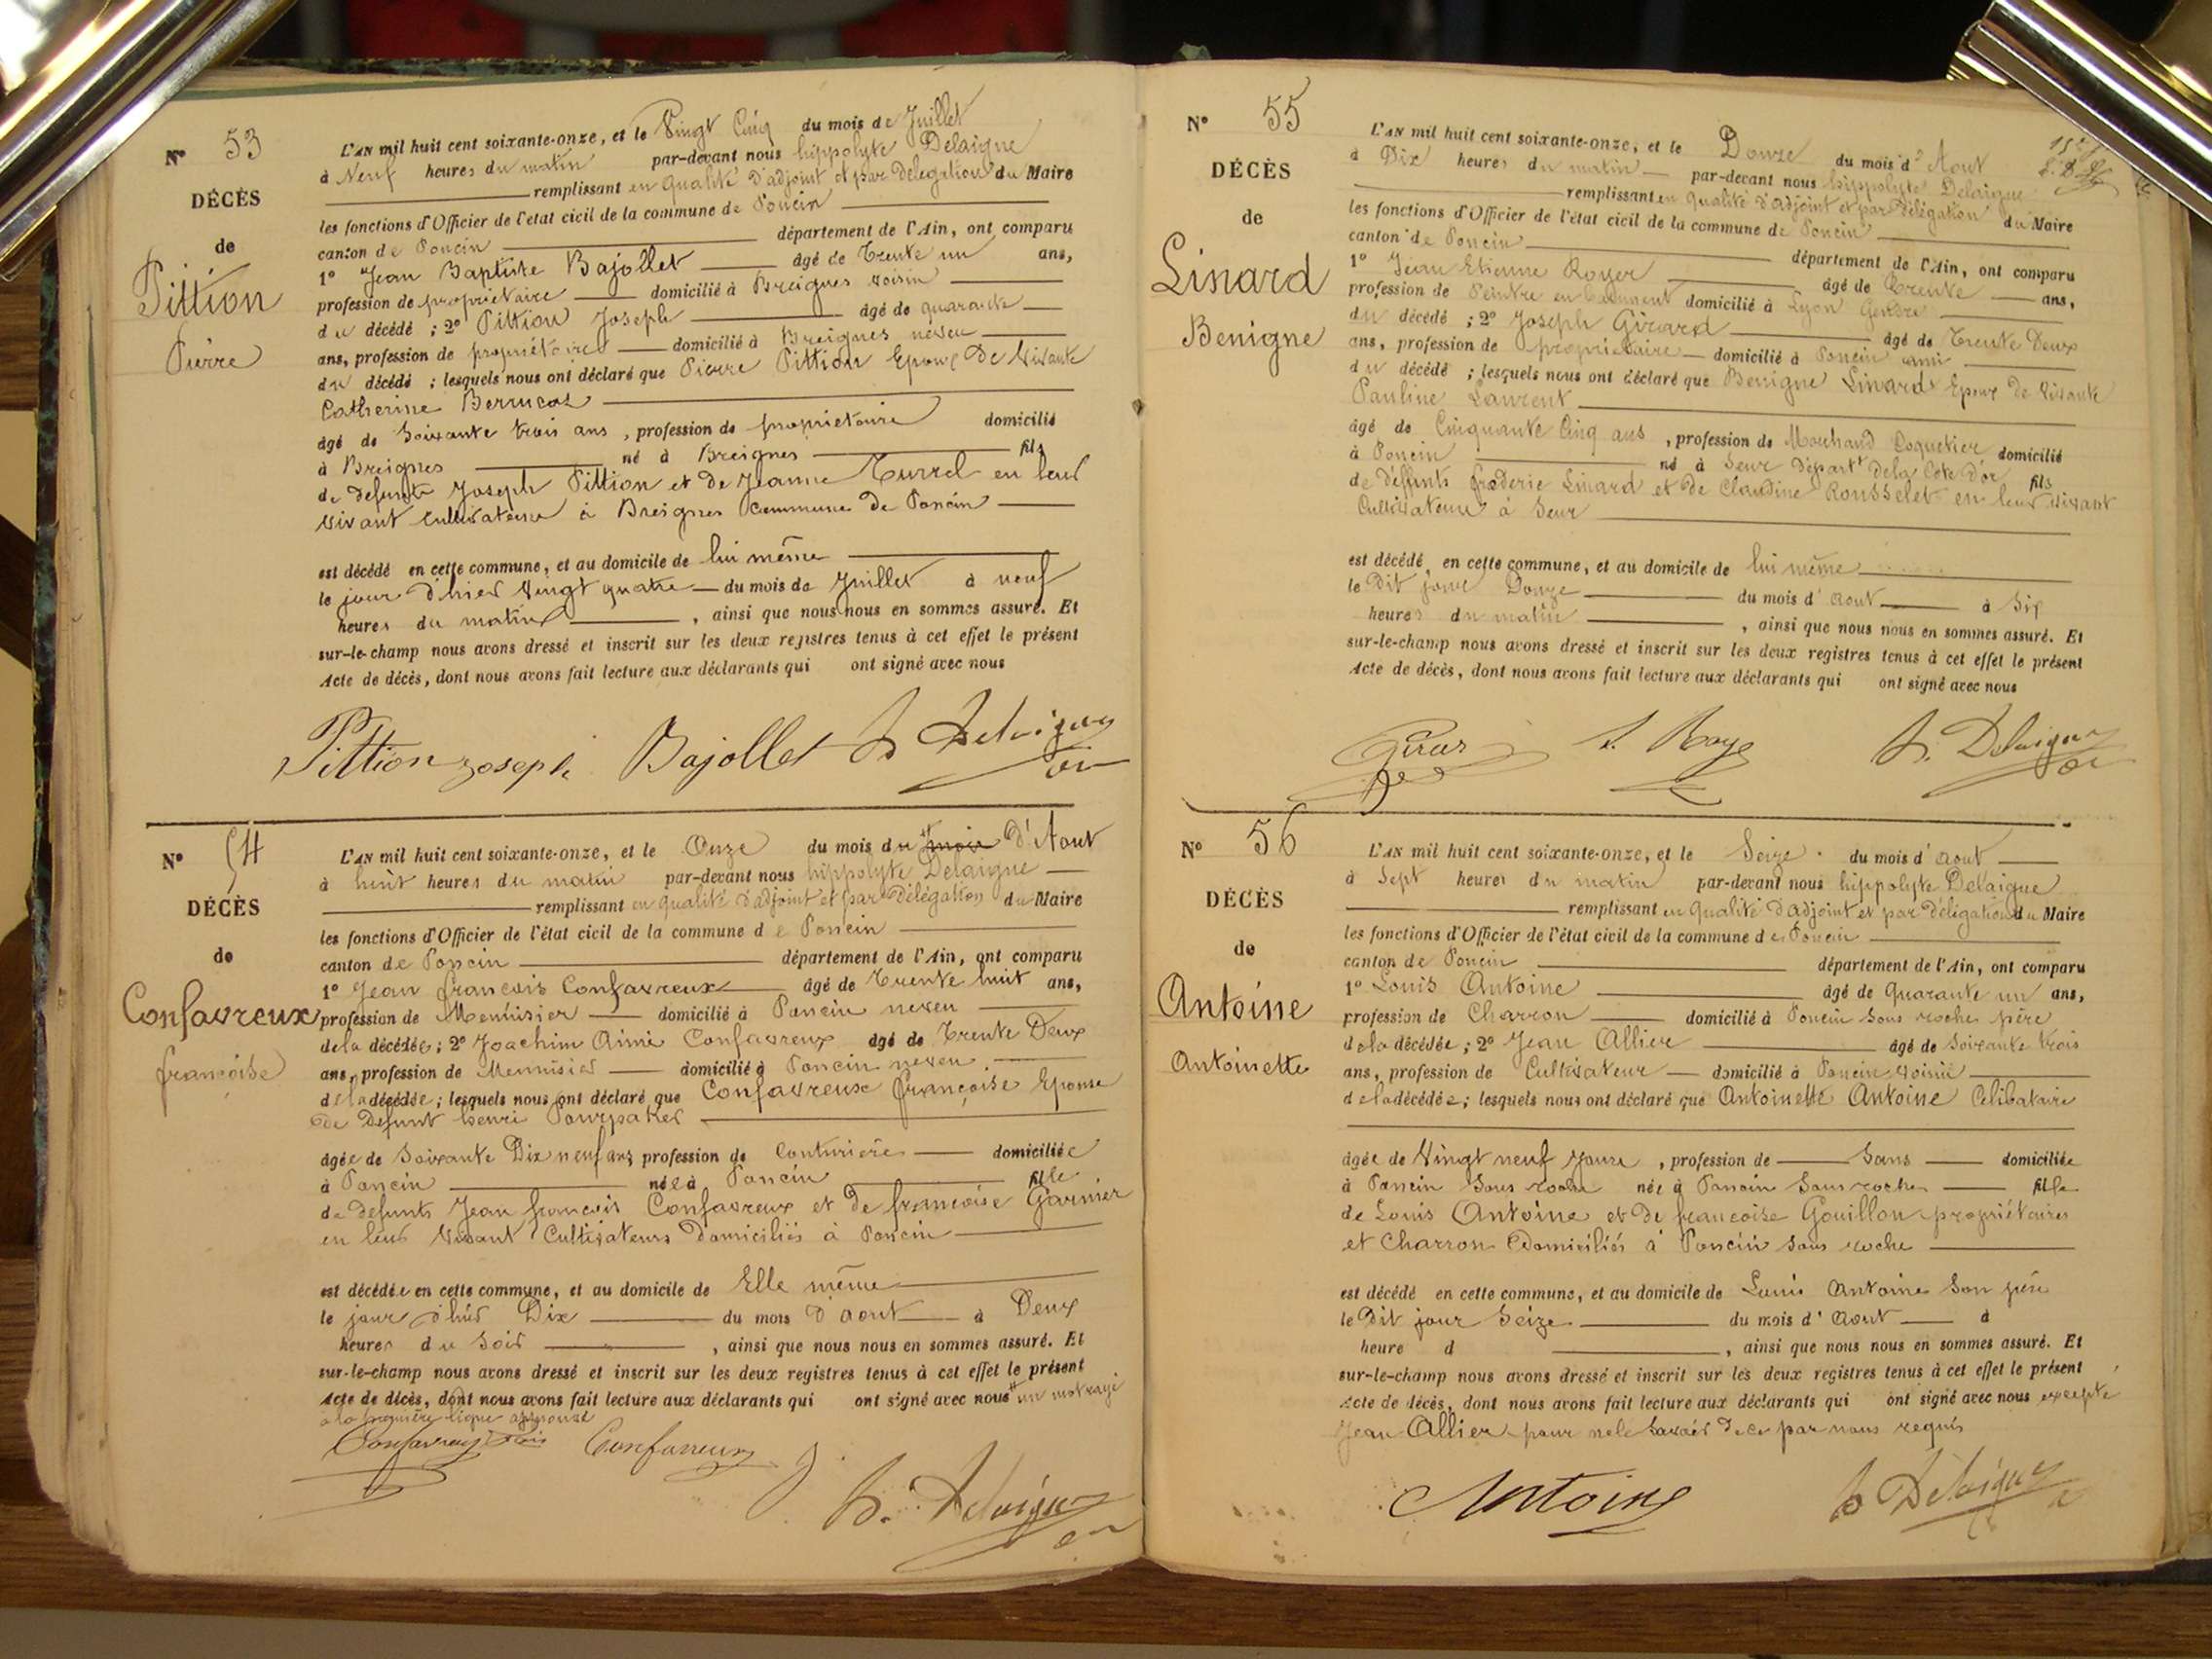 N° 53
DÉCÈS
de
Pittion
Pierre
L'AN mil huit cent soixante-onze, et le Vingt Cinq du mois de Juillet
à Neuf heures du matin par-devant nous hippolyte Delaigne
remplissant en qualité d'adjoint et par délégation du Maire
les fonctions d'Officier de l'état civil de la commune de Poncin
canton de Poncin département de l'Ain, ont comparu
1° Jean Baptiste Bajollet âgé de Trente un ans,
profession de propriétaire domicilié à Breignes voisin
du décédé ; 2° Pittion Joseph âgé de quarante
ans, profession de propriétaire domicilié à Breignes neveu
du décédé ; lesquels nous ont déclaré que Pierre Pittion Epoux De Vivante
Catherine Berrucat
âgé de Soixante trois ans , profession de propriétaire domicilié
à Breignes né à Breignes fils
de defunts Joseph Pittion et de Jeanne Turrel en leur
vivant cultivateurs à Breignes Commune De Poncin
est décédé en cette commune, et au domicile de lui même
le jour d'hier Vingt quatre du mois de Juillet à neuf
heures du matin , ainsi que nous nous en sommes assuré. Et
sur-le-champ nous avons dressé et inscrit sur les deux registres tenus à cet effet le présent
Acte de décès, dont nous avons fait lecture aux déclarants qui ont signé avec nous
Pittion Joseph Bajollet h Delaigne
N° 54
DÉCÈS
de
Confavreux
françoise
L'AN mil huit cent soixante-onze, et le Onze du mois du mois D'Aout
à huit heures du matin par-devant nous hippolyte Delaigne
remplissant en qualité d'adjoint et par Délégation du Maire
les fonctions d'Officier de l'état civil de la commune de Poncin
canton de Poncin département de l'Ain, ont comparu
1° Jean francois Confavreux âgé de Trente huit ans,
profession de Menuisier domicilié à Poncin neveu
de la décédée ; 2° Joachim Aimé Confavreux âgé de Trente Deux
ans, profession de Menuisier domicilié à Poncin neveu
de la décédée ; lesquels nous ont déclaré que Confavreux françoise Epouse
de Defunt henri
âgée de Soixante Dix neuf ans profession de Couturière domiciliée
à Poncin née à Poncin fille
de defunts Jean francois Confavreux et de francoise Garnier
en leur vivant Cultivateurs Domiciliés à Poncin
est décédée en cette commune, et au domicile de Elle même
le jour d'hier Dix du mois d'aout à Deux
heures du Soir , ainsi que nous nous en sommes assuré. Et
sur-le-champ nous avons dressé et inscrit sur les deux registres tenus à cet effet le présent
Acte de décès, dont nous avons fait lecture aux déclarants qui ont signé avec nous un mot rayé
a la première ligne approuvé
Confavreux Confavreux
h. Delaigne
N° 55
DÉCÈS
de
Linard
Benigne
L'AN mil huit cent soixante-onze, et le Douze du mois d' Aout
à Dix heures du matin par-devant nous hippolyte Delaigne
remplissant en qualité d'adjoint et par délégation du Maire
les fonctions d'Officier de l'état civil de la commune de Poncin
canton de Poncin département de l'Ain, ont comparu
1° Jean Etienne Royer âgé de Trente ans,
profession de Peintre en batiment domicilié à Lyon Gendre
du décédé ; 2° Joseph Girard âgé de Trente Deux
ans, profession de propriétaire domicilié à Poncin ami
du décédé ; lesquels nous ont déclaré que Benigne Linard Epoux De Vivante
Pauline Laurent
âgé de Cinquante Cinq ans , profession de Marchand Coquetier domicilié
à Poncin né à Seur départt de la Cote d'or fils
de deffunts frederic Linard et de Claudine Rousselet en leur vivant
Cultivateurs à Seur
est décédé en cette commune, et au domicile de lui même
le Dit jour Douze du mois d' aout à Six
heures du matin , ainsi que nous nous en sommes assuré. Et
sur-le-champ nous avons dressé et inscrit sur les deux registres tenus à cet effet le présent
Acte de décès, dont nous avons fait lecture aux déclarants qui ont signé avec nous
h. Delaigne
N° 56
DÉCÈS
de
Antoine
Antoinette
L'AN mil huit cent soixante-onze, et le Seize du mois d' aout
à Sept heures du matin par-devant nous hippolyte Delaigne
remplissant en qualité d'adjoint et par délégation du Maire
les fonctions d'Officier de l'état civil de la commune de Poncin
canton de Poncin département de l'Ain, ont comparu
1° Louis Antoine âgé de Quarante un ans,
profession de Charron domicilié à Poncin Sous roche père
de la décédée ; 2° Jean Allier âgé de Soixante trois
ans, profession de Cultivateur domicilié à Poncin voisin
de la décédée ; lesquels nous ont déclaré que Antoinette Antoine Célibataire
âgée de Vingt neuf jours , profession de Sans domiciliée
à Poncin Sous roche née à Poncin Sous roche fille
de Louis Antoine et de francoise Gouillon propriétaires
et Charron Domiciliés à Poncin Sous roche
est décédé en cette commune, et au domicile de Louis Antoine Son père
le Dit jour Seize du mois d' Aout à
heure d , ainsi que nous nous en sommes assuré. Et
sur-le-champ nous avons dressé et inscrit sur les deux registres tenus à cet effet le présent
Acte de décès, dont nous avons fait lecture aux déclarants qui ont signé avec nous excepté
Jean Allier pour ne le Savoir de ce par nous requis
Antoine h Delaigne